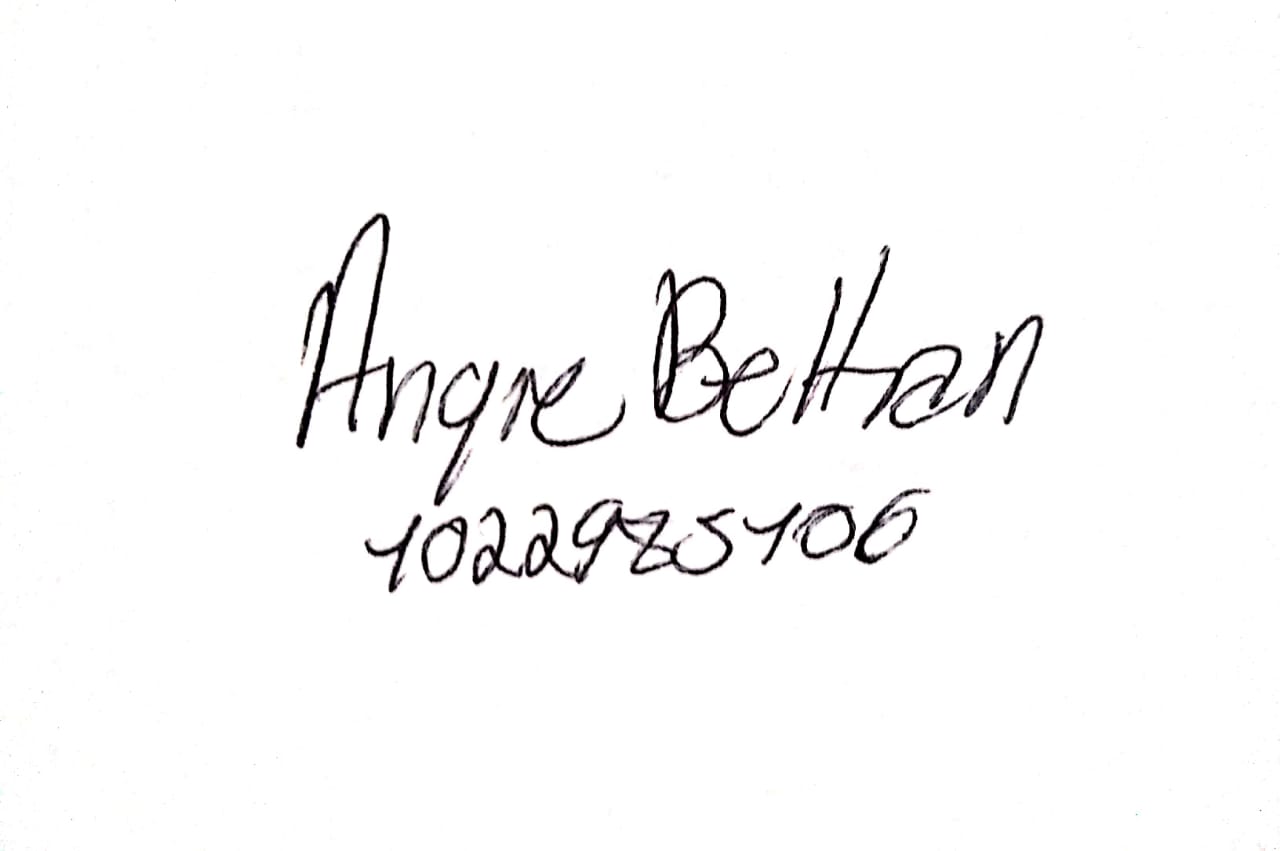 Angie Beltran
1022985106